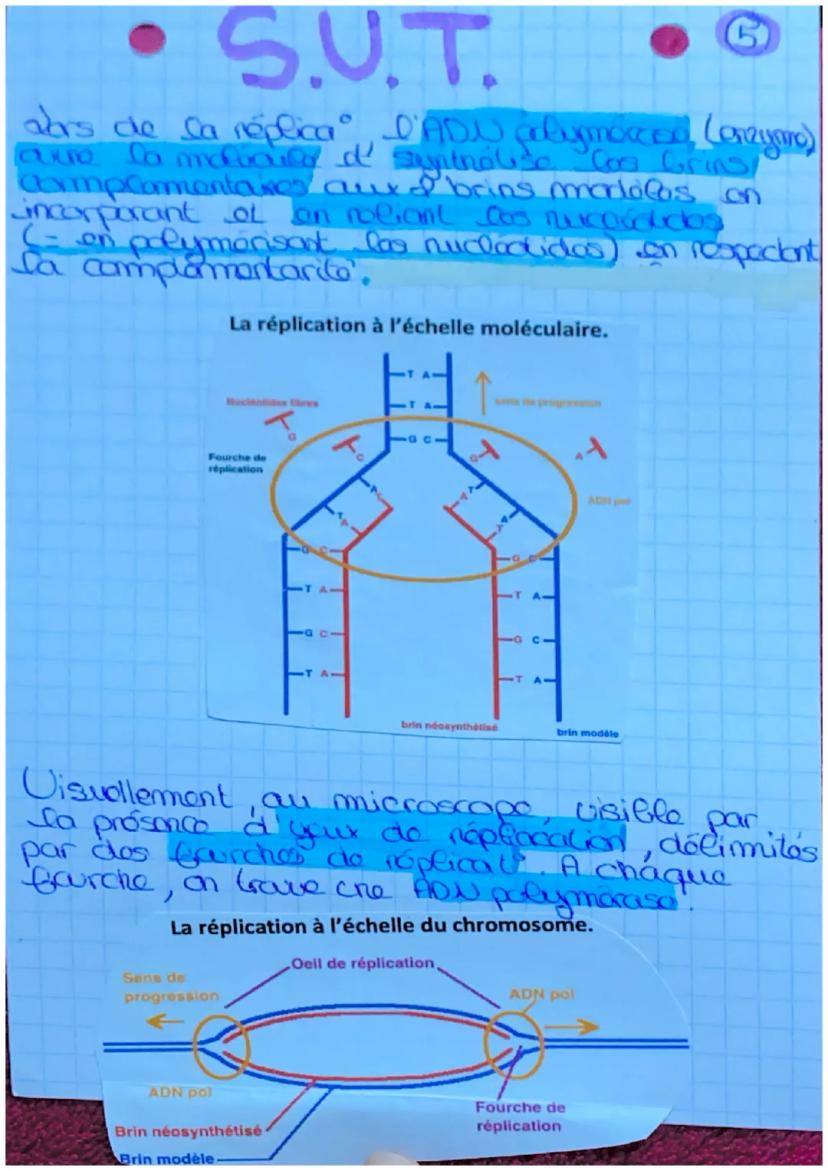 S.V.T.
5
lors de la réplica°, l'ADN polymérase (enzyme)
ouvre la molécule et synthétise les brins
complémentaires aux 2 brins modèles en
incorporant et en reliant les nucléotides
(= en polymérisant les nucléotides) en respectant
la complémentarité.
La réplication à l'échelle moléculaire.
T A
Nucléotides libres
T A
sens de progression
G C
G
C
G
A
Fourche de
réplication
A
C
A
T
ADN pol
T
A
A
T
G C
G C
T A
T A
G C
G C
T A
T A
brin néosynthétisé
brin modèle
Visuellement, au microscope, visible par
la présence d'yeux de réplication, délimités
par des fourches de réplicat°. A chaque
fourche, on trouve une ADN polymérase.
La réplication à l'échelle du chromosome.
Oeil de réplication
Sens de
progression
ADN pol
ADN pol
Fourche de
réplication
Brin néosynthétisé
Brin modèle